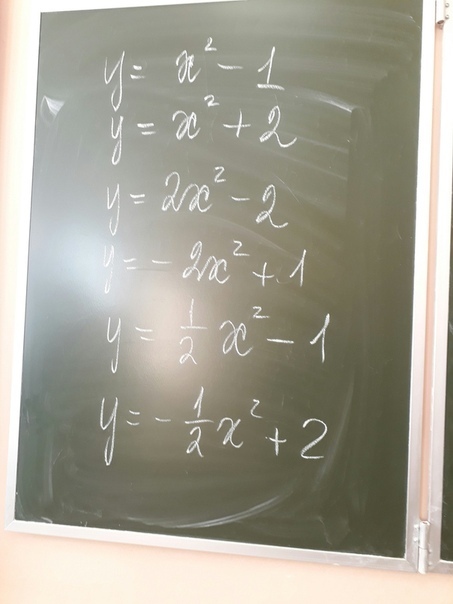 y = x² - 1
y = x² + 2
y = 2x² - 2
y = - 2x² + 1
y = 1/2 x² - 1
y = - 1/2 x² + 2